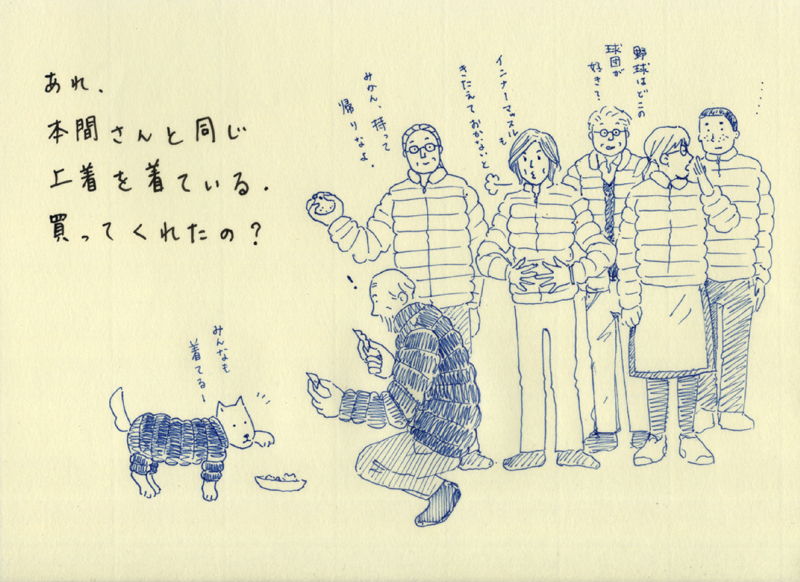 あれ、
本間さんと同じ
上着を着ている.
買ってくれたの?
野球はどこの
球団が
好き?
インナーマッスルも
きたえておかないと
みかん、持って
帰りなよ.
!
みんなも
着てるー